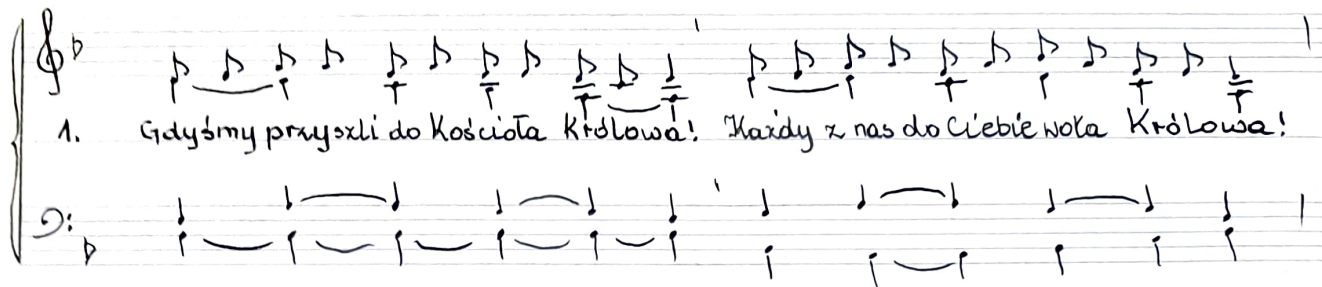 1. Gdyśmy przyszli do Kościoła Królowa! Każdy z nas do Ciebie woła Królowa!